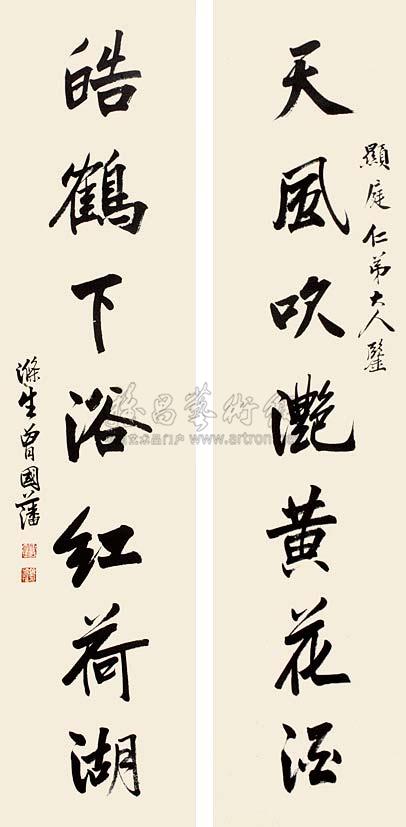 顯庭仁弟大人鑒
天風吹灔黄花酒
皓鶴下浴紅荷湖
滌生曾國藩
藝術
艺术品门户 www.artron